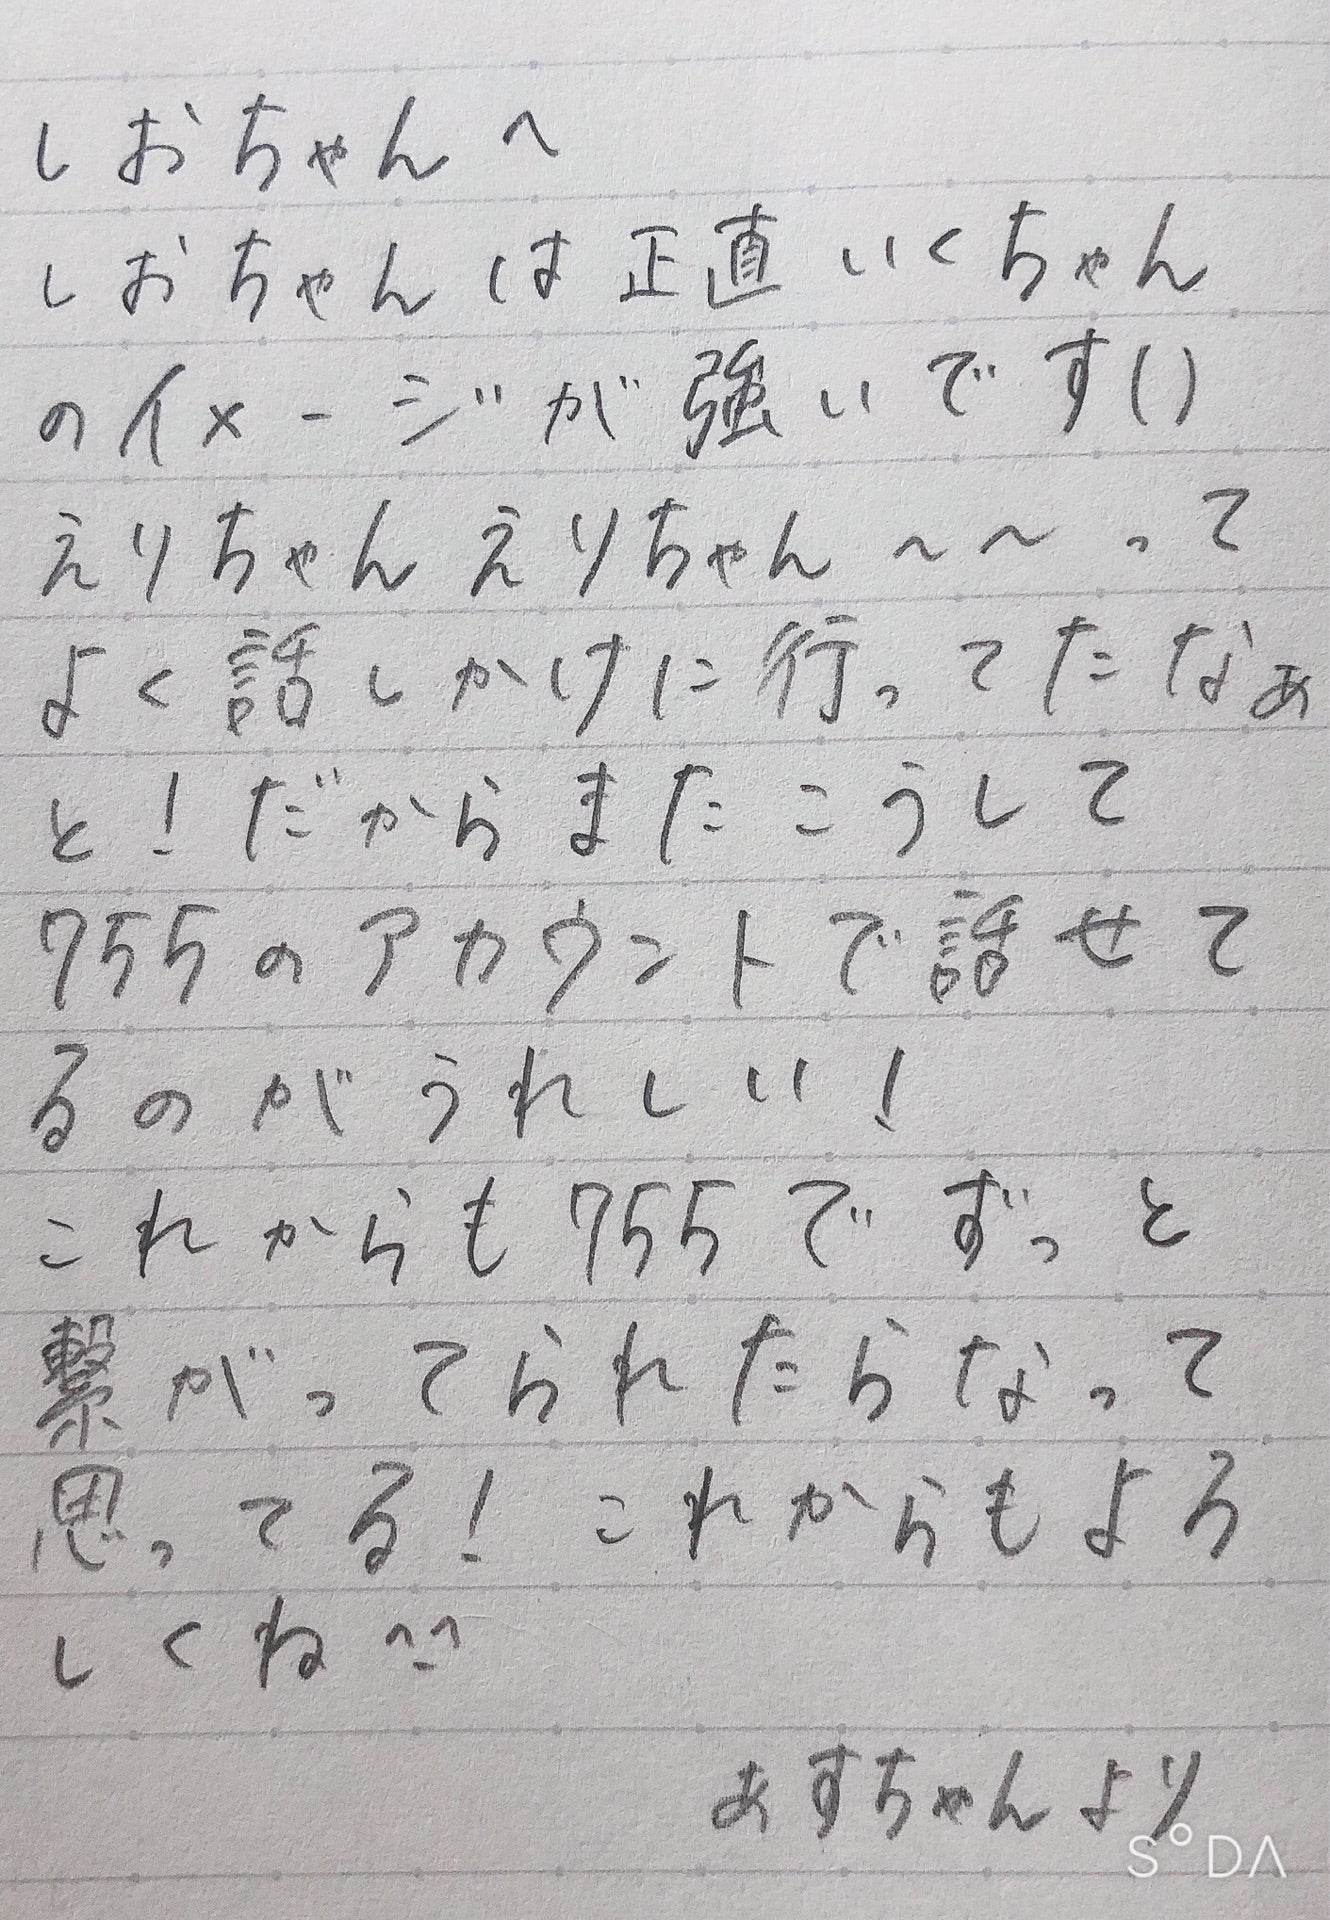 しおちゃんへ
しおちゃんは正直いくちゃん
のイメージが強いです()
えりちゃんえりちゃん〜〜って
よく話しかけに行ってたなぁ
と!だからまたこうして
755のアカウントで話せて
るのがうれしい!
これからも755でずっと
繋がってられたらなって
思ってる!これからもよろ
しくね^_^
あすちゃんより
SODA